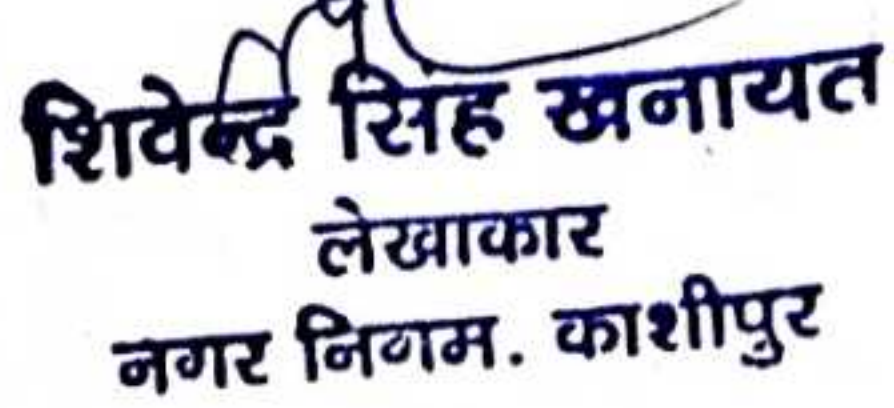 शिवेन्द्र सिंह खनायत
लेखाकार
नगर निगम. काशीपुर